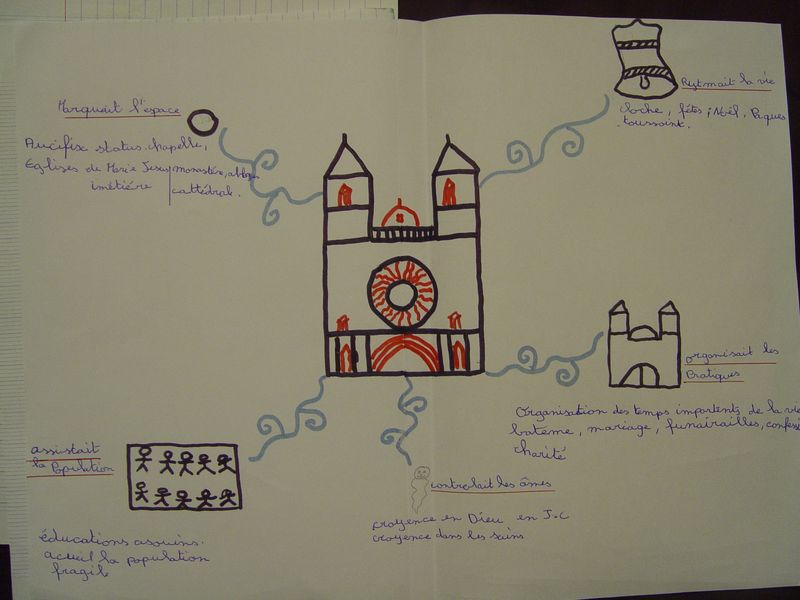 Marquait l'espace
Aucifix status chapelle,
Eglises de Marie Jesus monastère, abbaye
imétiére cattédrale.
Rytmait la vie
cloche, fêtes; Noël, Paques
toussaint.
organisait les
Pratiques
Organisation des temps importents de la vie
batême, mariage, funairailles, confess
charité
assistait
la Population
éducations asouins.
acueil la population
fragile
controlait les âmes
croyence en Dieu en J-C
croyence dans les sains